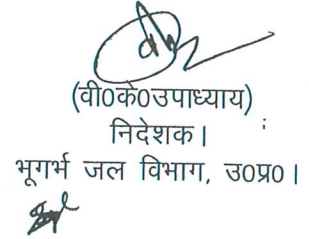 (वी0के0उपाध्याय)
निदेशक।
भूगर्भ जल विभाग, उ0प्र0।